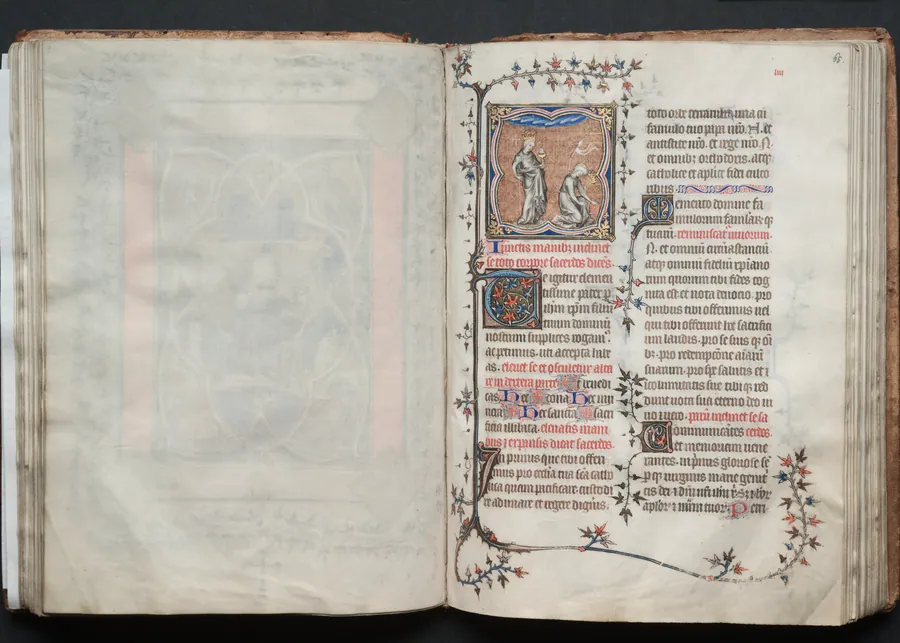 65
iiii
Iunctis manibz inclinet
se toto corpore sacerdos dicēs.
Te igitur clemen
tissime pater p
ihm xpm filiū
tuum dominū
nostrum supplices rogam9
ac petimus. uti accepta habe
as. erigat se et
in dextera parte et benedi
cas. Hec dona. Hec mu
nera. Hec sancta sacri
ficia illibata. eleuatis mani
bus 7 expansis dicat sacerdos.
In primis que tibi offeri
mus pro ecclia tua sca catho
lica quam pacificare. custodi
re adunare et regere digneris.
toto orbe terrarum. una cū
famulo tuo papa nro. N. et
antistite nro. et rege nro. N.
et omnibz orthodoxis. atqz
catholice et aplice fidei culto
ribus.
Memento domine fa
mulorum famularūqz
tuarū. reminiscat uiuorum.
N. et omniū circūastanciū.
atqz omniū fideliū xpiano
rum quorum tibi fides cog
nita est et nota deuocio. pro
quibus tibi offerimus uel
qui tibi offerunt hoc sacrifici
um laudis. pro se suis qz oī
bz. pro redempcione aīarū
suarum. pro spe salutis et i
columitatis sue tibi qz red
dunt uota sua eterno deo ui
uo 7 uero. parū inclinet se sa
Communicātes cerdos.
et memoriam uene
rantes. inprimis gloriose sē
p qz uirginis marie genit
cis dei 7 dni nri ihu x. Sz 7 btor
aplor 7 mrm tuor. Petri